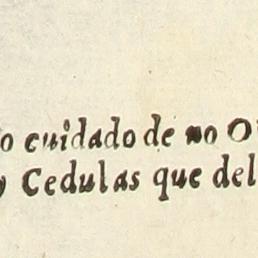 cuidado de no
Cedulas que del